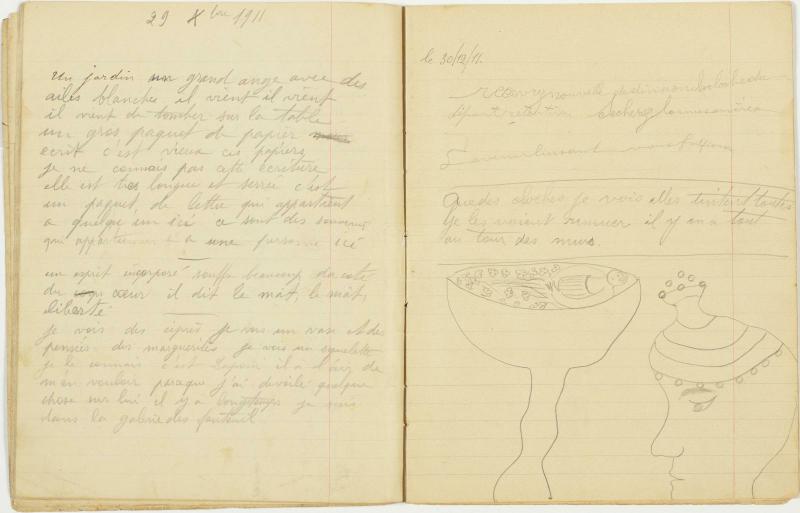 29 Xbre 1911
un jardin un grand ange avec des
ailes blanches, il vient il vient
il vient de tomber sur la table
un gros paquet de papier
ecrit c'est vieux ces papiers
je ne connais pas cette écriture
elle est tres longue et serrée c'est
un paquet de lettre qui appartient
a quelqu'un ici ce sont des souvenirs
qui appartiennent a une personne ici
un esprit incorporé souffre beaucoup du coté
du coeur il dit le mât, le mât,
liberté
je vois des ciprès je vois un vase et des
pensées des marguerites je vois un squelette
je le connais c'est il a l'air de
m'en vouloir parceque j'ai devoilé quelque
chose sur lui il y a longtemps je suis
dans la galerie des fauteuil
le 30/12/11.
nouvelle
départ
Que des cloches je vois elles tintent toutes
je les voient remuer il y en a tout
au tour des murs.